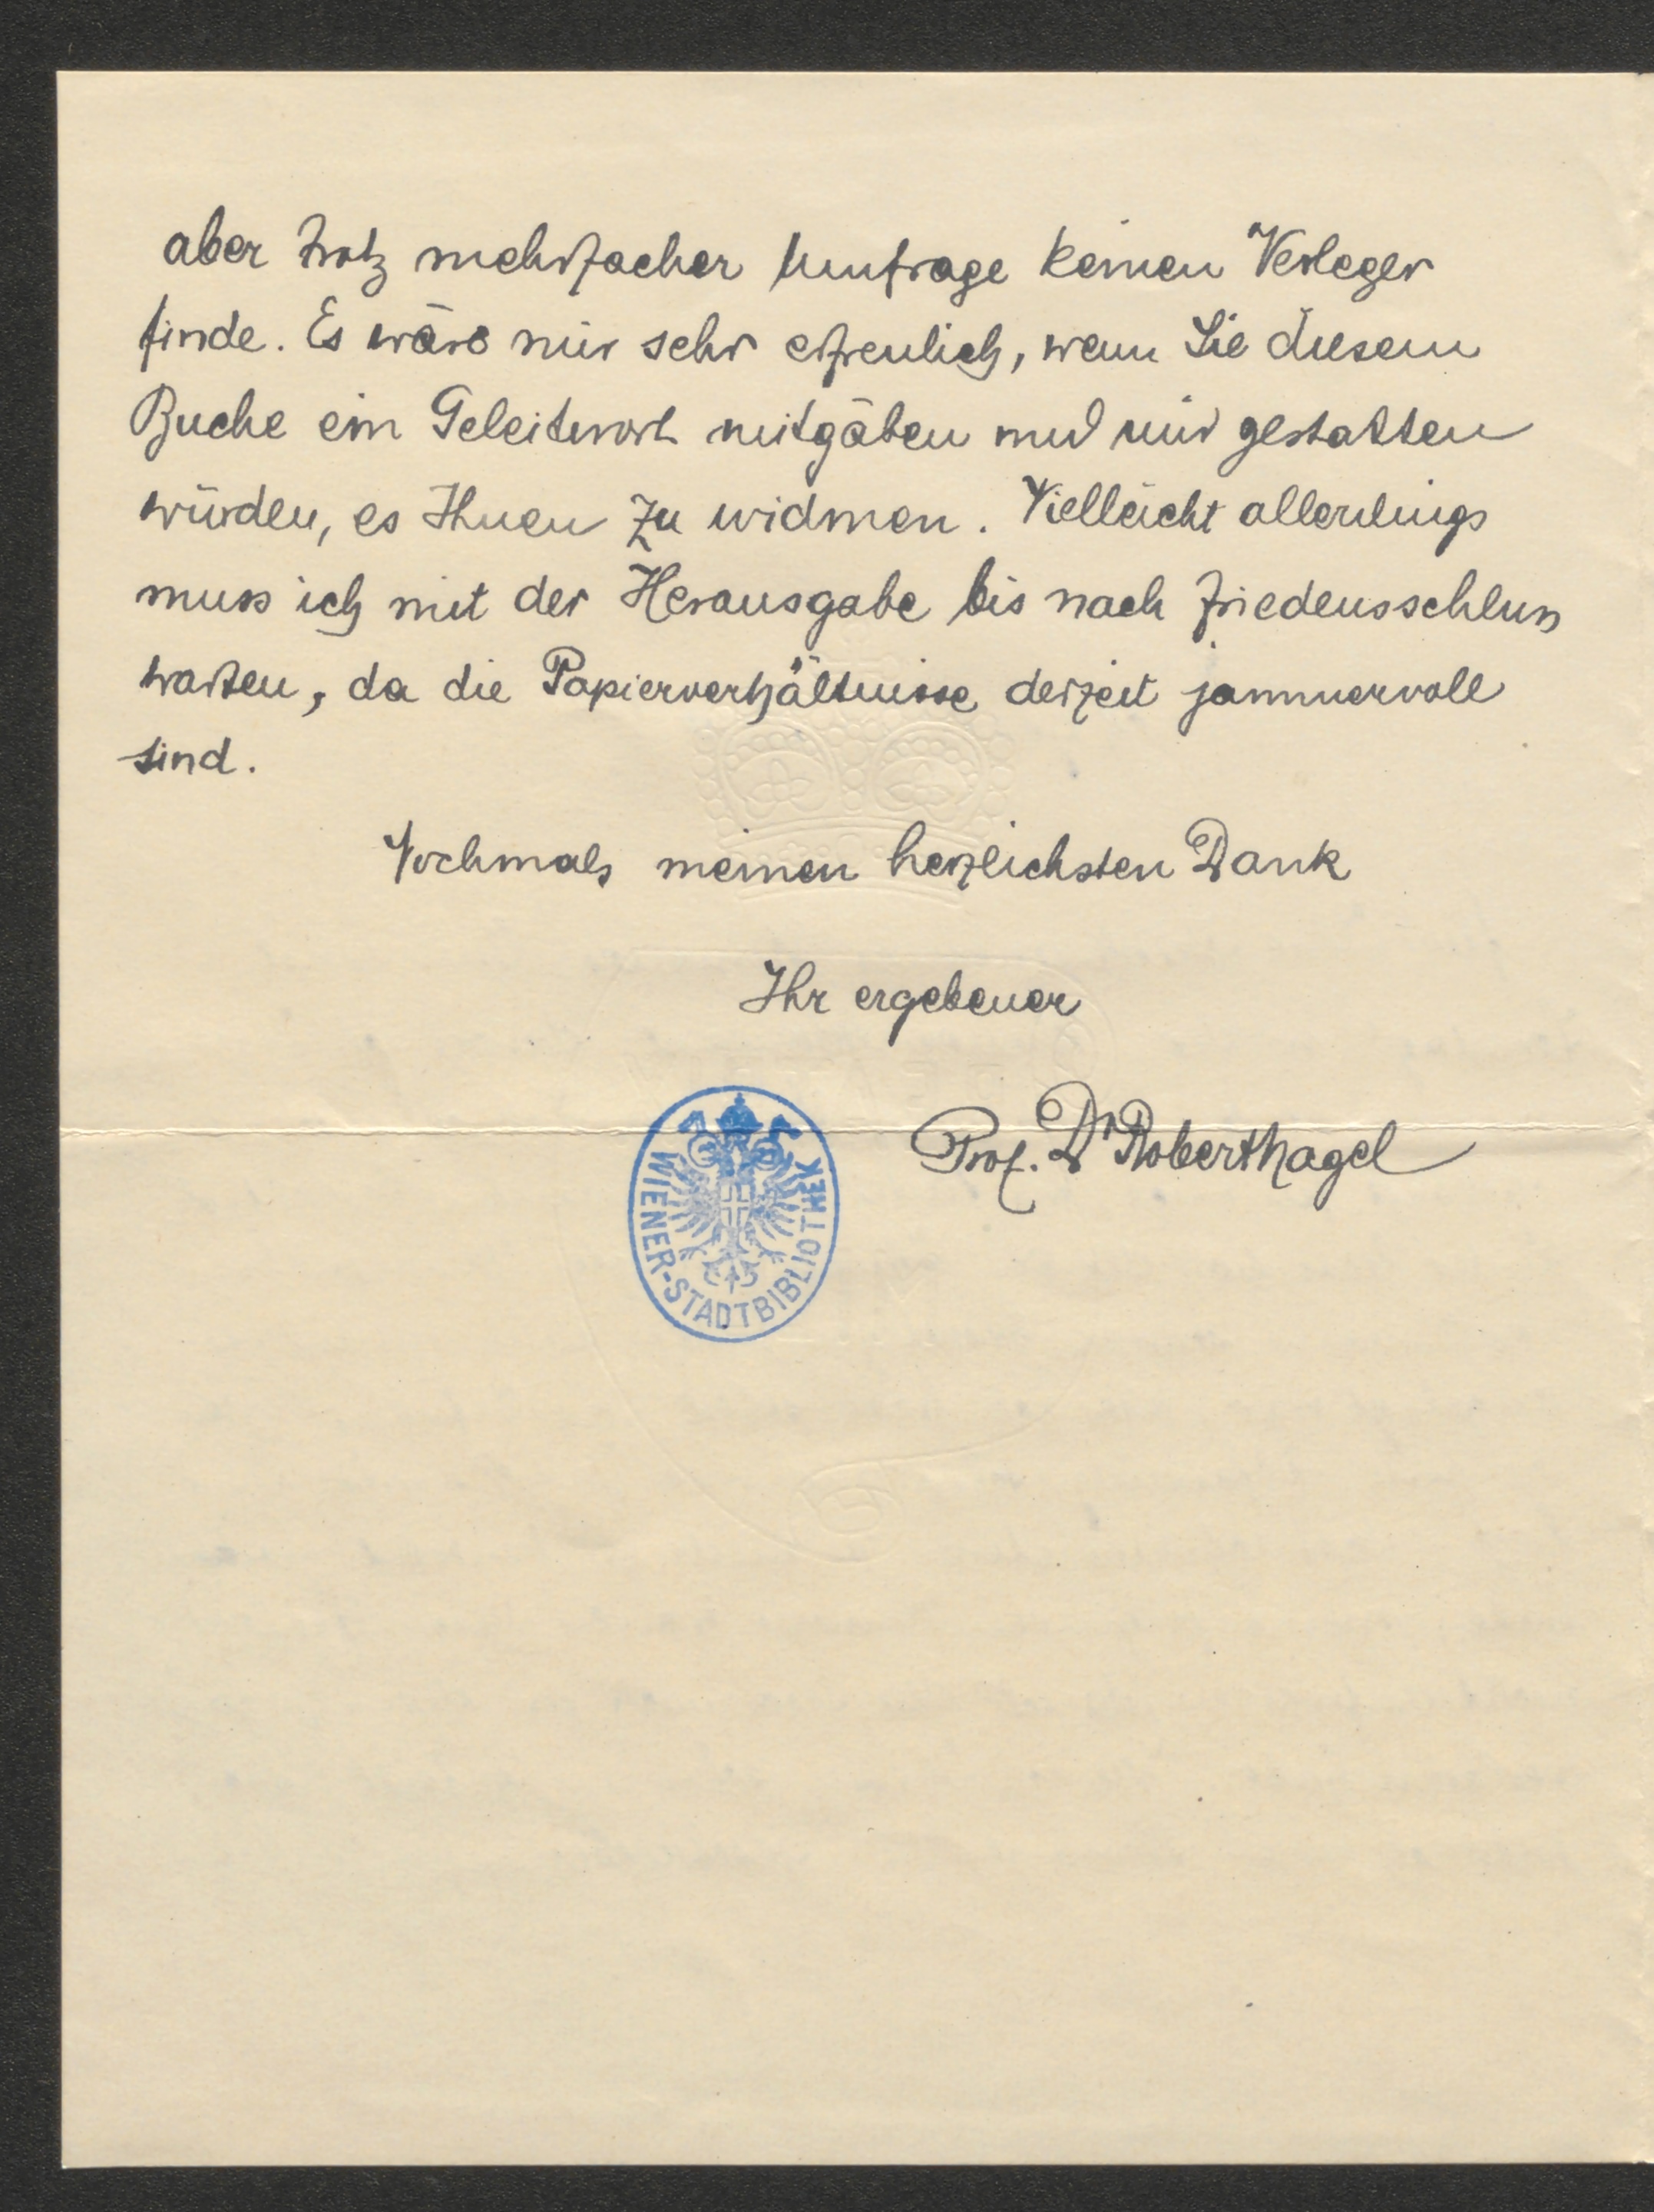 aber trotz mehrfacher Umfrage keinen Verleger
finde. Es wäre mir sehr erfreulich, wenn Sie diesem
Buche ein Geleitwort mitgäben und mir gestatten
würden, es Ihnen zu widmen. Vielleicht allerdings
muss ich mit der Herausgabe bis nach Friedensschluss
warten, da die Papierverhältnisse derzeit jammervoll
sind.
Nochmals meinen herzlichsten Dank
Ihr ergebener
Prof. Dr Robert Nagel
WIENER-STADTBIBLIOTHEK